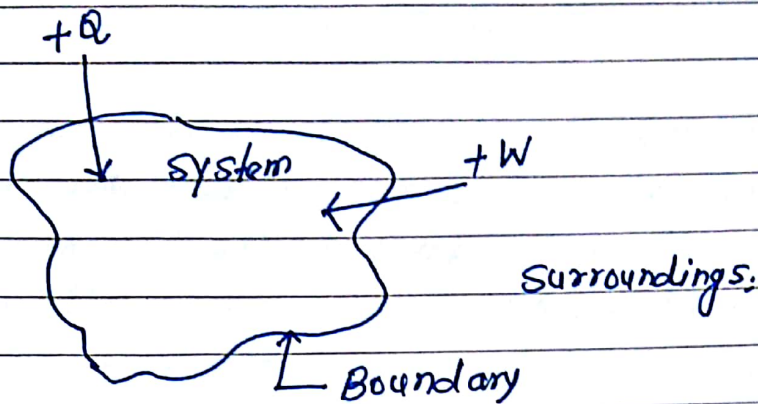 +Q
system
+W
Surroundings.
Boundary